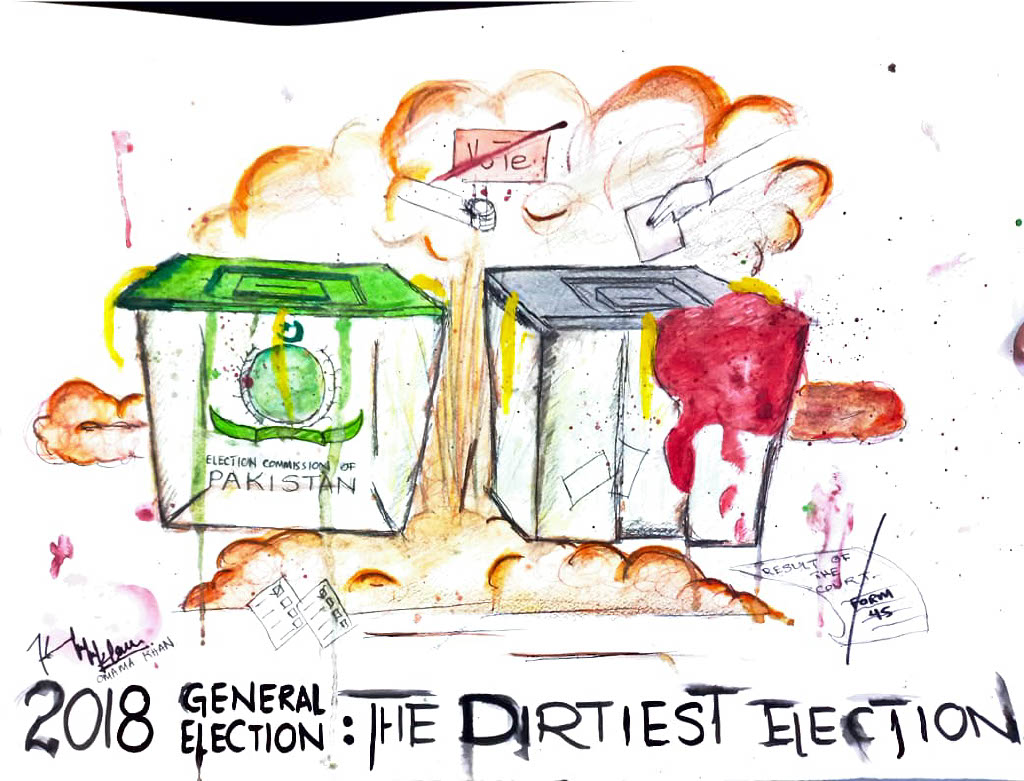 VoTe
ELECTION COMMISSION OF
PAKISTAN
RESULT OF
THE
COURT.
FORM
45
OMAMA KHAN
2018 GENERAL ELECTION : THE DIRTIEST ELECTION